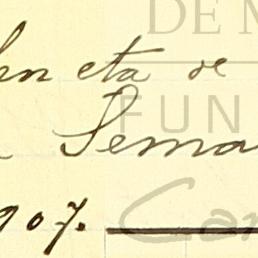 DE M
en cta de
FUN
Sema
907.
Car